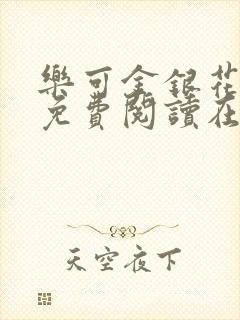 樂可金銀花
免費閱讀在
天空夜下